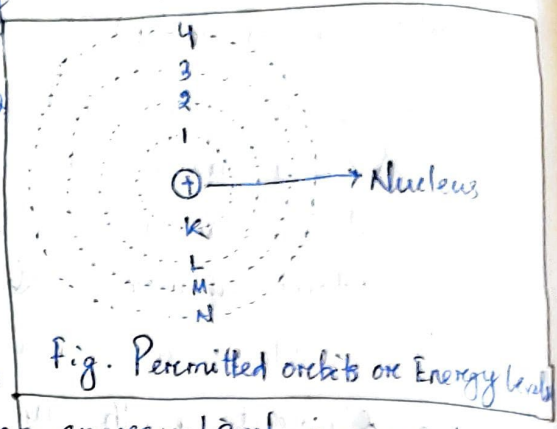 4
3
2
1
+ Nucleus
K
L
M
N
Fig. Permitted orbits or Energy levels